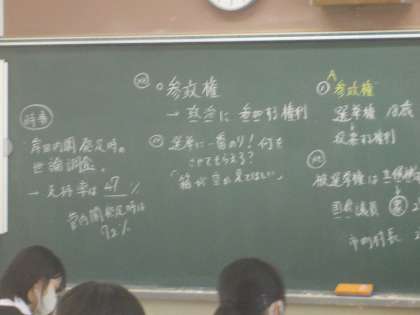 時事
岸田内閣発足時の
世論調査。
→ 支持率は 47 %
菅内閣発足時は
72%
○参政権
→ 政治に参加する権利
選挙に一番のり!何を
させてもらえる?
「箱が空か見てほしい」
A
① 参政権
選挙権
↓
投票する権利
被選挙権は立候補
国会議員 衆
市町村長